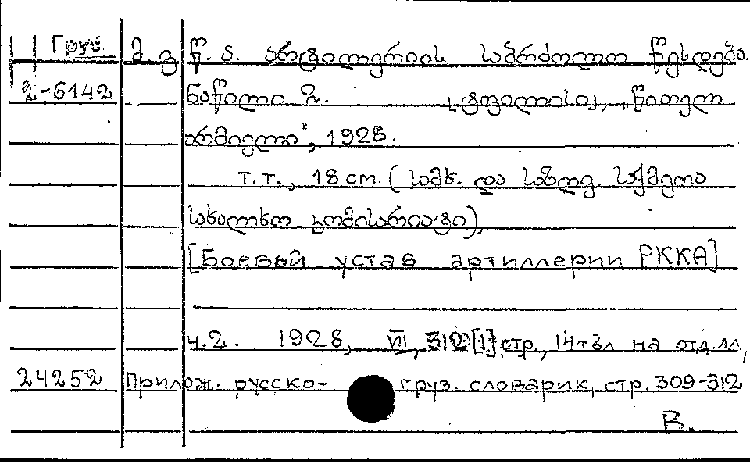 Груз. მ.გ წ. ა. არტილერიის საბრძოლო წესდება.
2-6142 ნაწილი 2. [ტფილისი], „წითელ
არმიელი", 1928.
ტ.ტ., 18 cm. (სამხ. და საზღვ. საქმეთა
სახალხო კომისარიატი).
[Боевый устав артиллерии РККА]
ч.2. 1928, VII, 312 [1] стр., 14 табл. на отд. лл,
24252 Прилож. русско- груз. словарик, стр. 309-312
В.